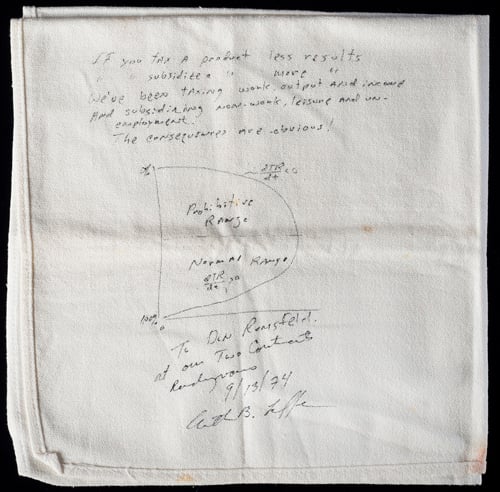 If you tax a product less results
" " subsidize a " more "
We've been taxing work, output and income
And subsidizing non-work, leisure and un-
employment.
The consequences are obvious!
∂TR/∂t <0
Prohibitive
Range
Normal Range
∂TR/∂t >0
100%
0
To Don Rumsfeld
at our Two Continents
Rendezvous
9/13/74
Arthur B. Laffer